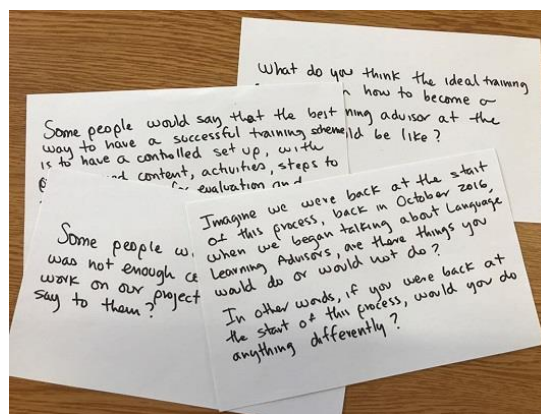 What do you think the ideal training
how to become a
ning advisor at the
ld be like?
Some people would say that the best
way to have a successful training scheme
is to have a controlled set up, with
content, activities, steps to
for evaluation and
Some people w
was not enough ce
work on our project
say to them?
Imagine we were back at the start
of this process, back in October 2016,
when we began talking about Language
Learning Advisors, are there things you
would do or would not do?
In other words, if you were back at
the start of this process, would you do
anything differently?